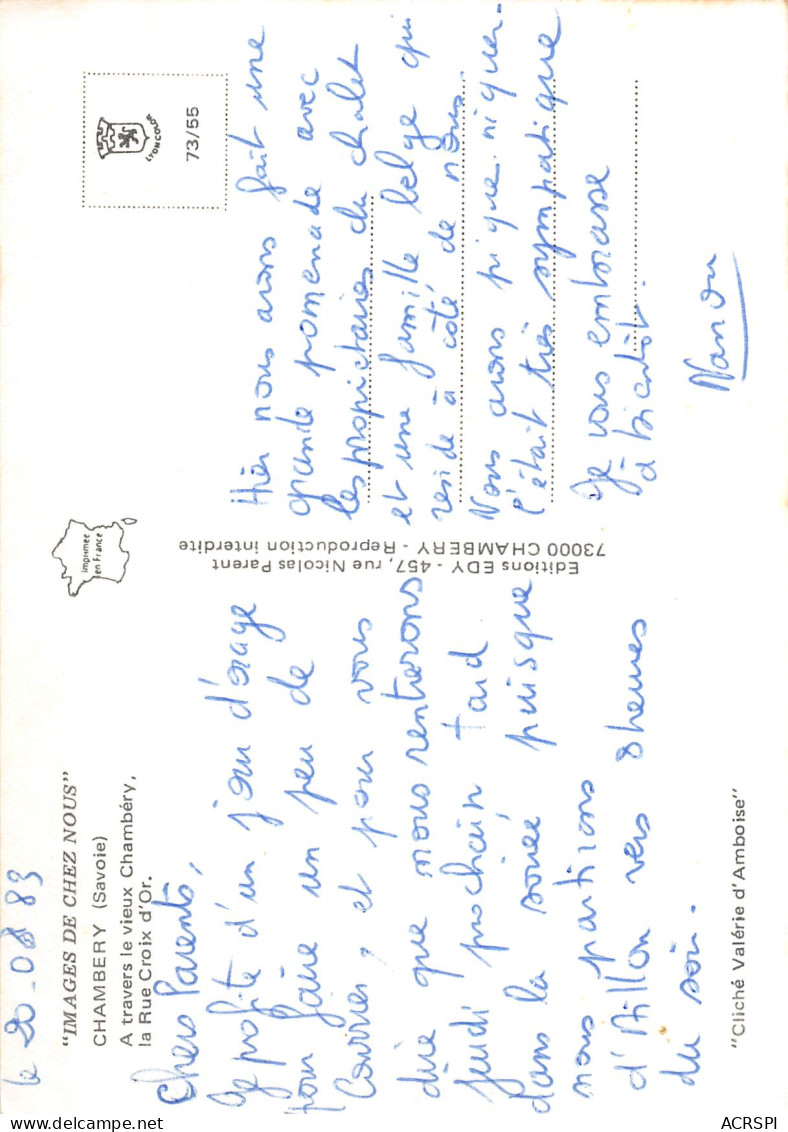 le 20.08 83
"IMAGES DE CHEZ NOUS"
CHAMBERY (Savoie)
A travers le vieux Chambéry,
la Rue Croix d'Or.
Chers Parents,
Je profite d'un jour d'orage
pour faire un peu de
Courrier, et pour vous
dire que nous rentrerons
jeudi prochain tard
dans la soirée puisque
nous partirons
d'Aillon vers 8 heures
du soir.
"Cliché Valérie d'Amboise"
imprimée
en France
Editions EDY - 457, rue Nicolas Parent
73000 CHAMBERY - Reproduction interdite
LYONCOLOR
73/55
Hier nous avons fait une
grande promenade avec
les propriétaires du chalet
et une famille belge qui
réside à côté de nous.
Nous avons pique-niquer.
C'était très sympatique
Je vous embrasse
à bientôt.
Nanou
ACRSPI